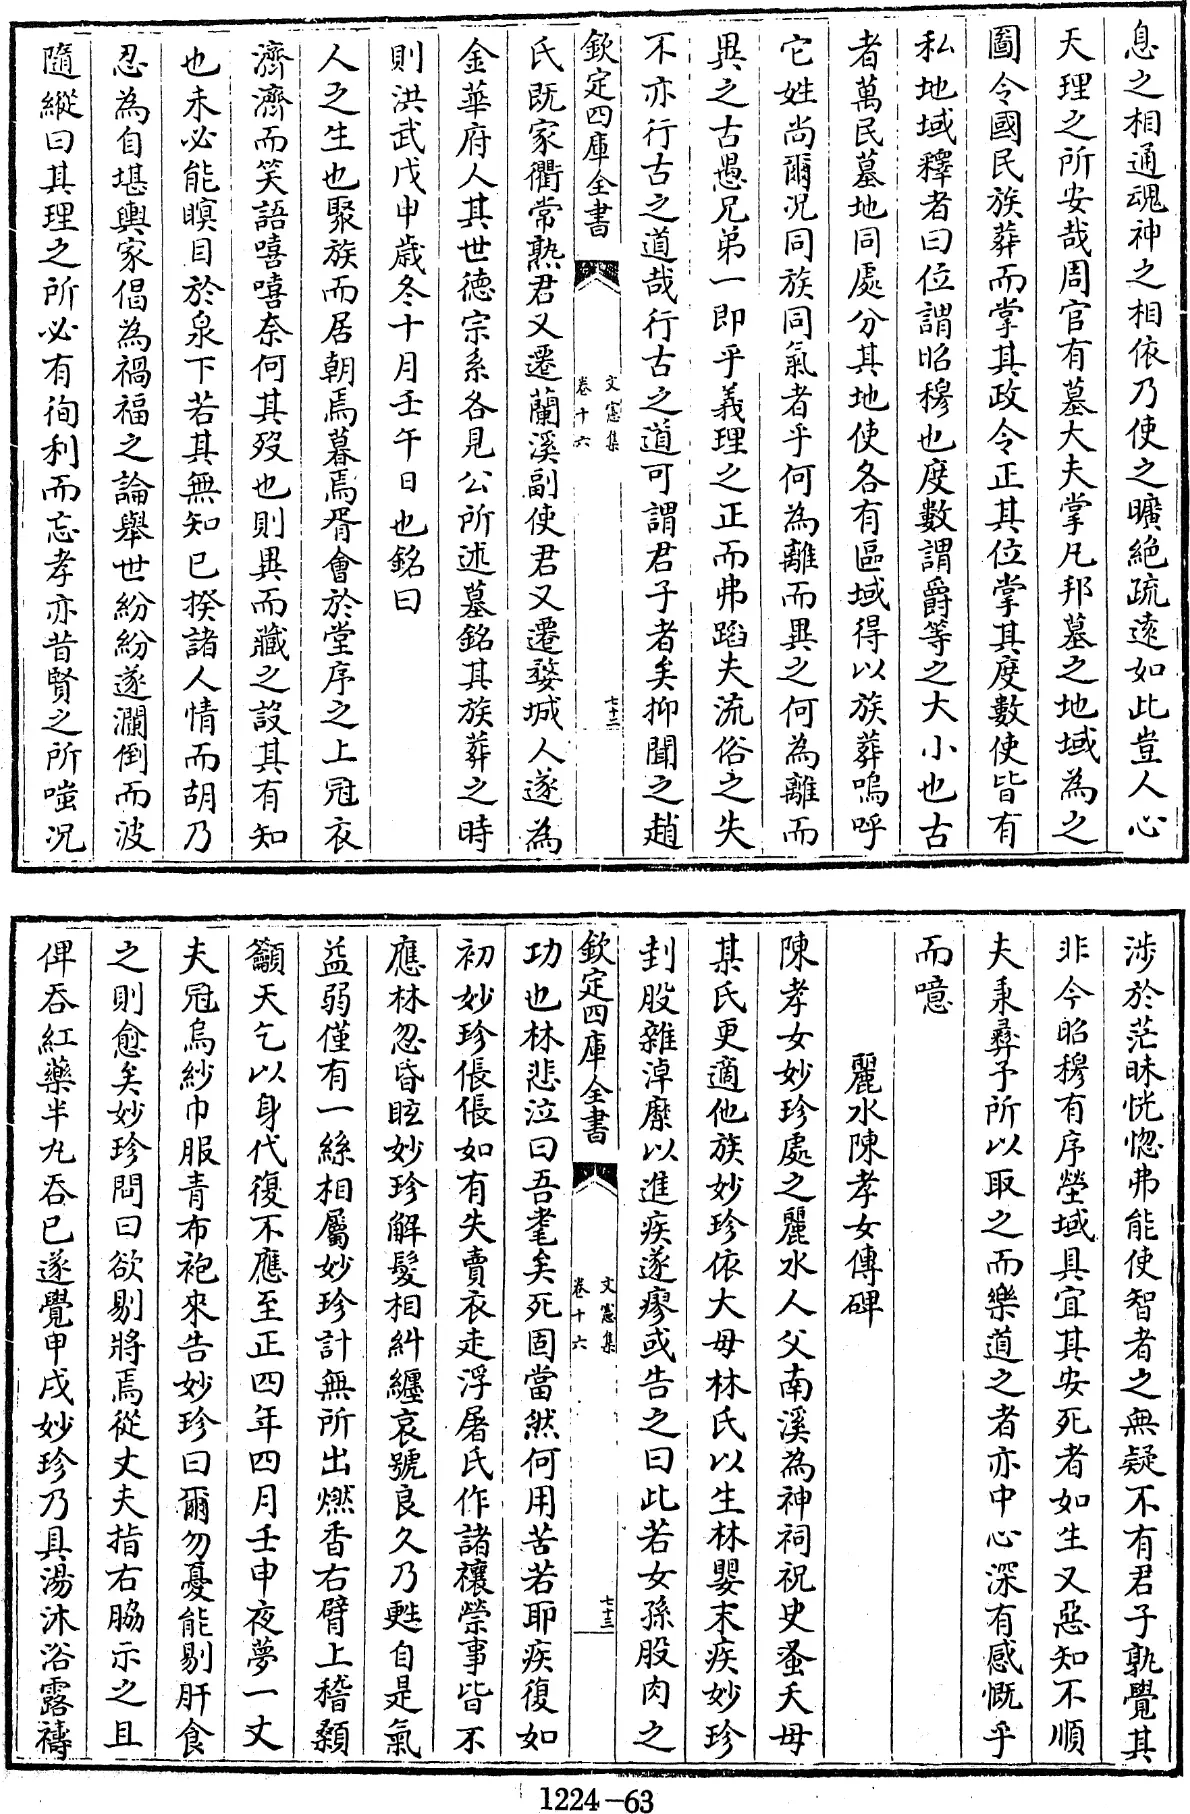 息之相通魂神之相依乃使之曠絶疏遠如此豈人心
天理之所安哉周官有墓大夫掌凡邦墓之地域為之
圖令國民族葬而掌其政令正其位掌其度數使皆有
私地域釋者曰位謂昭穆也度數謂爵等之大小也古
者萬民墓地同處分其地使各有區域得以族葬嗚呼
它姓尚爾況同族同氣者乎何為離而異之何為離而
異之古愚兄弟一即乎義理之正而弗蹈夫流俗之失
不亦行古之道哉行古之道可謂君子者矣抑聞之趙
欽定四庫全書
文憲集
卷十六
七十二
氏既家衢常熟君又遷蘭溪副使君又遷婺城人遂為
金華府人其世德宗系各見公所述墓銘其族葬之時
則洪武戊申歲冬十月壬午日也銘曰
人之生也聚族而居朝焉暮焉胥會於堂序之上冠衣
濟濟而笑語嘻嘻奈何其歿也則異而藏之設其有知
也未必能瞑目於泉下若其無知已揆諸人情而胡乃
忍為自堪輿家倡為禍福之論舉世紛紛遂瀾倒而波
隨縱曰其理之所必有徇利而忘孝亦昔賢之所嗤況
涉於茫昧恍惚弗能使智者之無疑不有君子孰覺其
非今昭穆有序塋域具宜其安死者如生又惡知不順
夫秉彝予所以取之而樂道之者亦中心深有感慨乎
而噫
麗水陳孝女傳碑
陳孝女妙珍處之麗水人父南溪為神祠祝史蚤夭母
某氏更適他族妙珍依大母林氏以生林嬰末疾妙珍
刲股雜淖糜以進疾遂瘳或告之曰此若女孫股肉之
欽定四庫全書
文憲集
卷十六
七十三
功也林悲泣曰吾耄矣死固當然何用苦若耶疾復如
初妙珍倀倀如有失賣衣走浮屠氏作諸禳禜事皆不
應林忽昏眩妙珍解髮相糾纏哀號良久乃甦自是氣
益弱僅有一絲相屬妙珍計無所出燃香右臂上稽顙
籲天乞以身代復不應至正四年四月壬申夜夢一丈
夫冠烏紗巾服青布袍來告妙珍曰爾勿憂能剔肝食
之則愈矣妙珍問曰欲剔將焉從丈夫指右脇示之且
俾吞紅藥半丸吞已遂覺甲戌妙珍乃具湯沐浴露禱
1224-63